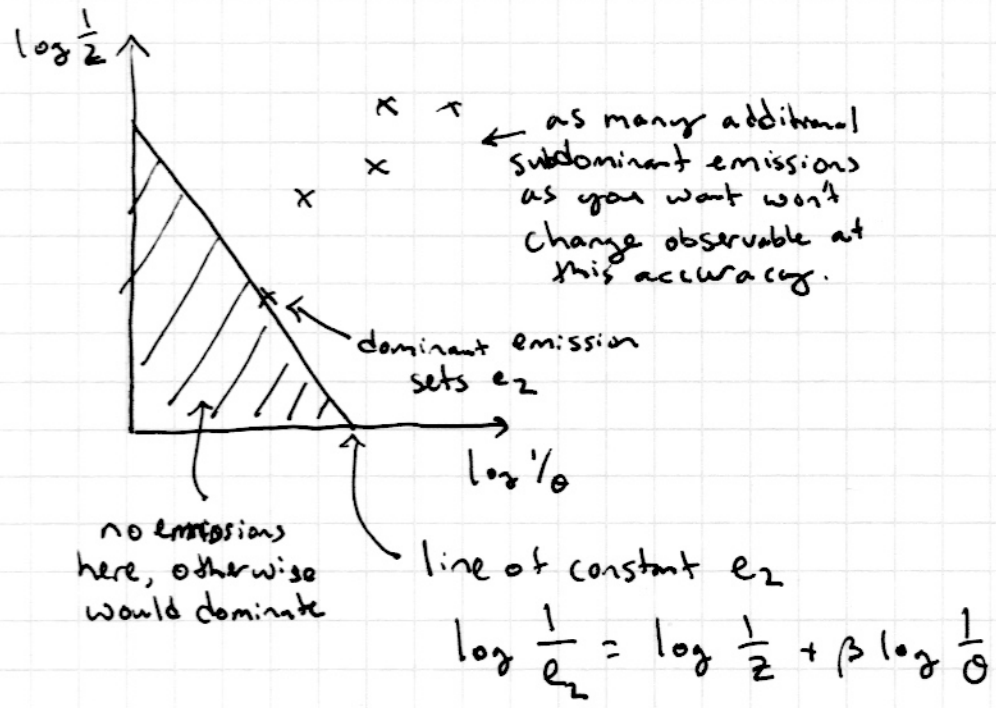 log 1/z
as many additional
subdominant emissions
as you want won't
change observable at
this accuracy.
dominant emission
sets e₂
log 1/θ
no emissions
here, otherwise
would dominate
line of constant e₂
log 1/e₂ = log 1/z + β log 1/θ